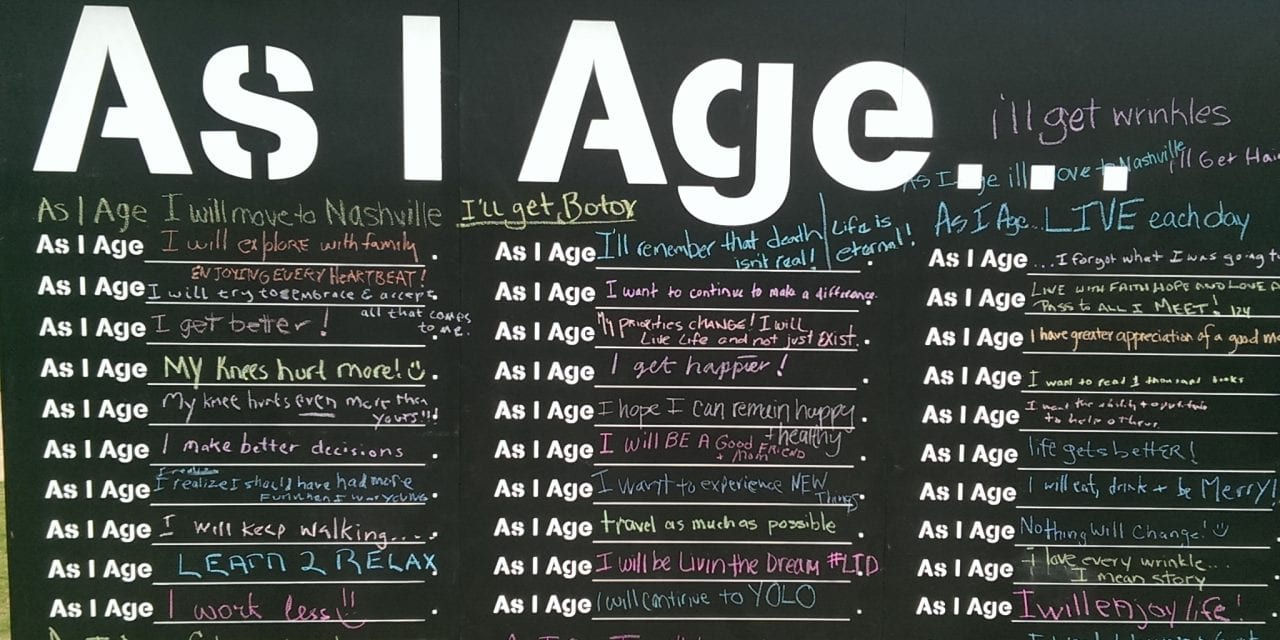 As I Age...
i'll get wrinkles
As I Age ill move to Nashville
I'll Get Hai
As I Age I will move to Nashville
I'll get Botox
As I Age... LIVE each day
As I Age I will explore with family.
ENJOYING EVERY HEARTBEAT!
As I Age I will try to embrace & accept.
all that comes
to me.
As I Age I get better!
As I Age MY Knees hurt more! .
As I Age My knee hurts even more than
yours!!!
As I Age I make better decisions .
As I Age I realize
I realize I should have had more
Fun when I was young
As I Age I will keep walking....
As I Age LEARN 2 RELAX.
As I Age I work less!! .
As I Age I'll remember that death
isn't real!
Life is
eternal! .
As I Age I want to continue to make a difference.
As I Age My priorities CHANGE! I will
Live Life and not just EXIST. .
As I Age I get happier! .
As I Age I hope I can remain happy.
+ healthy
As I Age I will BE A Good FRIEND
+ Mom
As I Age I want to experience NEW
Things.
As I Age travel as much as possible .
As I Age I will be Livin the Dream #LTD.
As I Age I will continue to YOLO .
As I Age ....I forgot what I was going t
As I Age LIVE WITH FAITH HOPE AND LOVE A
PASS TO ALL I MEET!
As I Age I have greater appreciation of a good m
As I Age I want to read 1 thousand books
As I Age I
to help others
As I Age life gets bettER!
As I Age I will eat, drink + be Merry!
As I Age Nothing Will Change!
As I Age I love every wrinkle...
I mean story
As I Age I will enjoy life! .